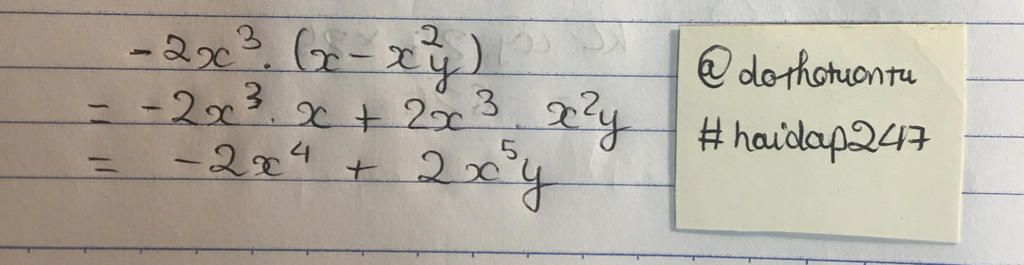 -2x³. (x - x²y)
= -2x³. x + 2x³ . x²y
= -2x⁴ + 2x⁵y
@dothotuontu
#hoidap247